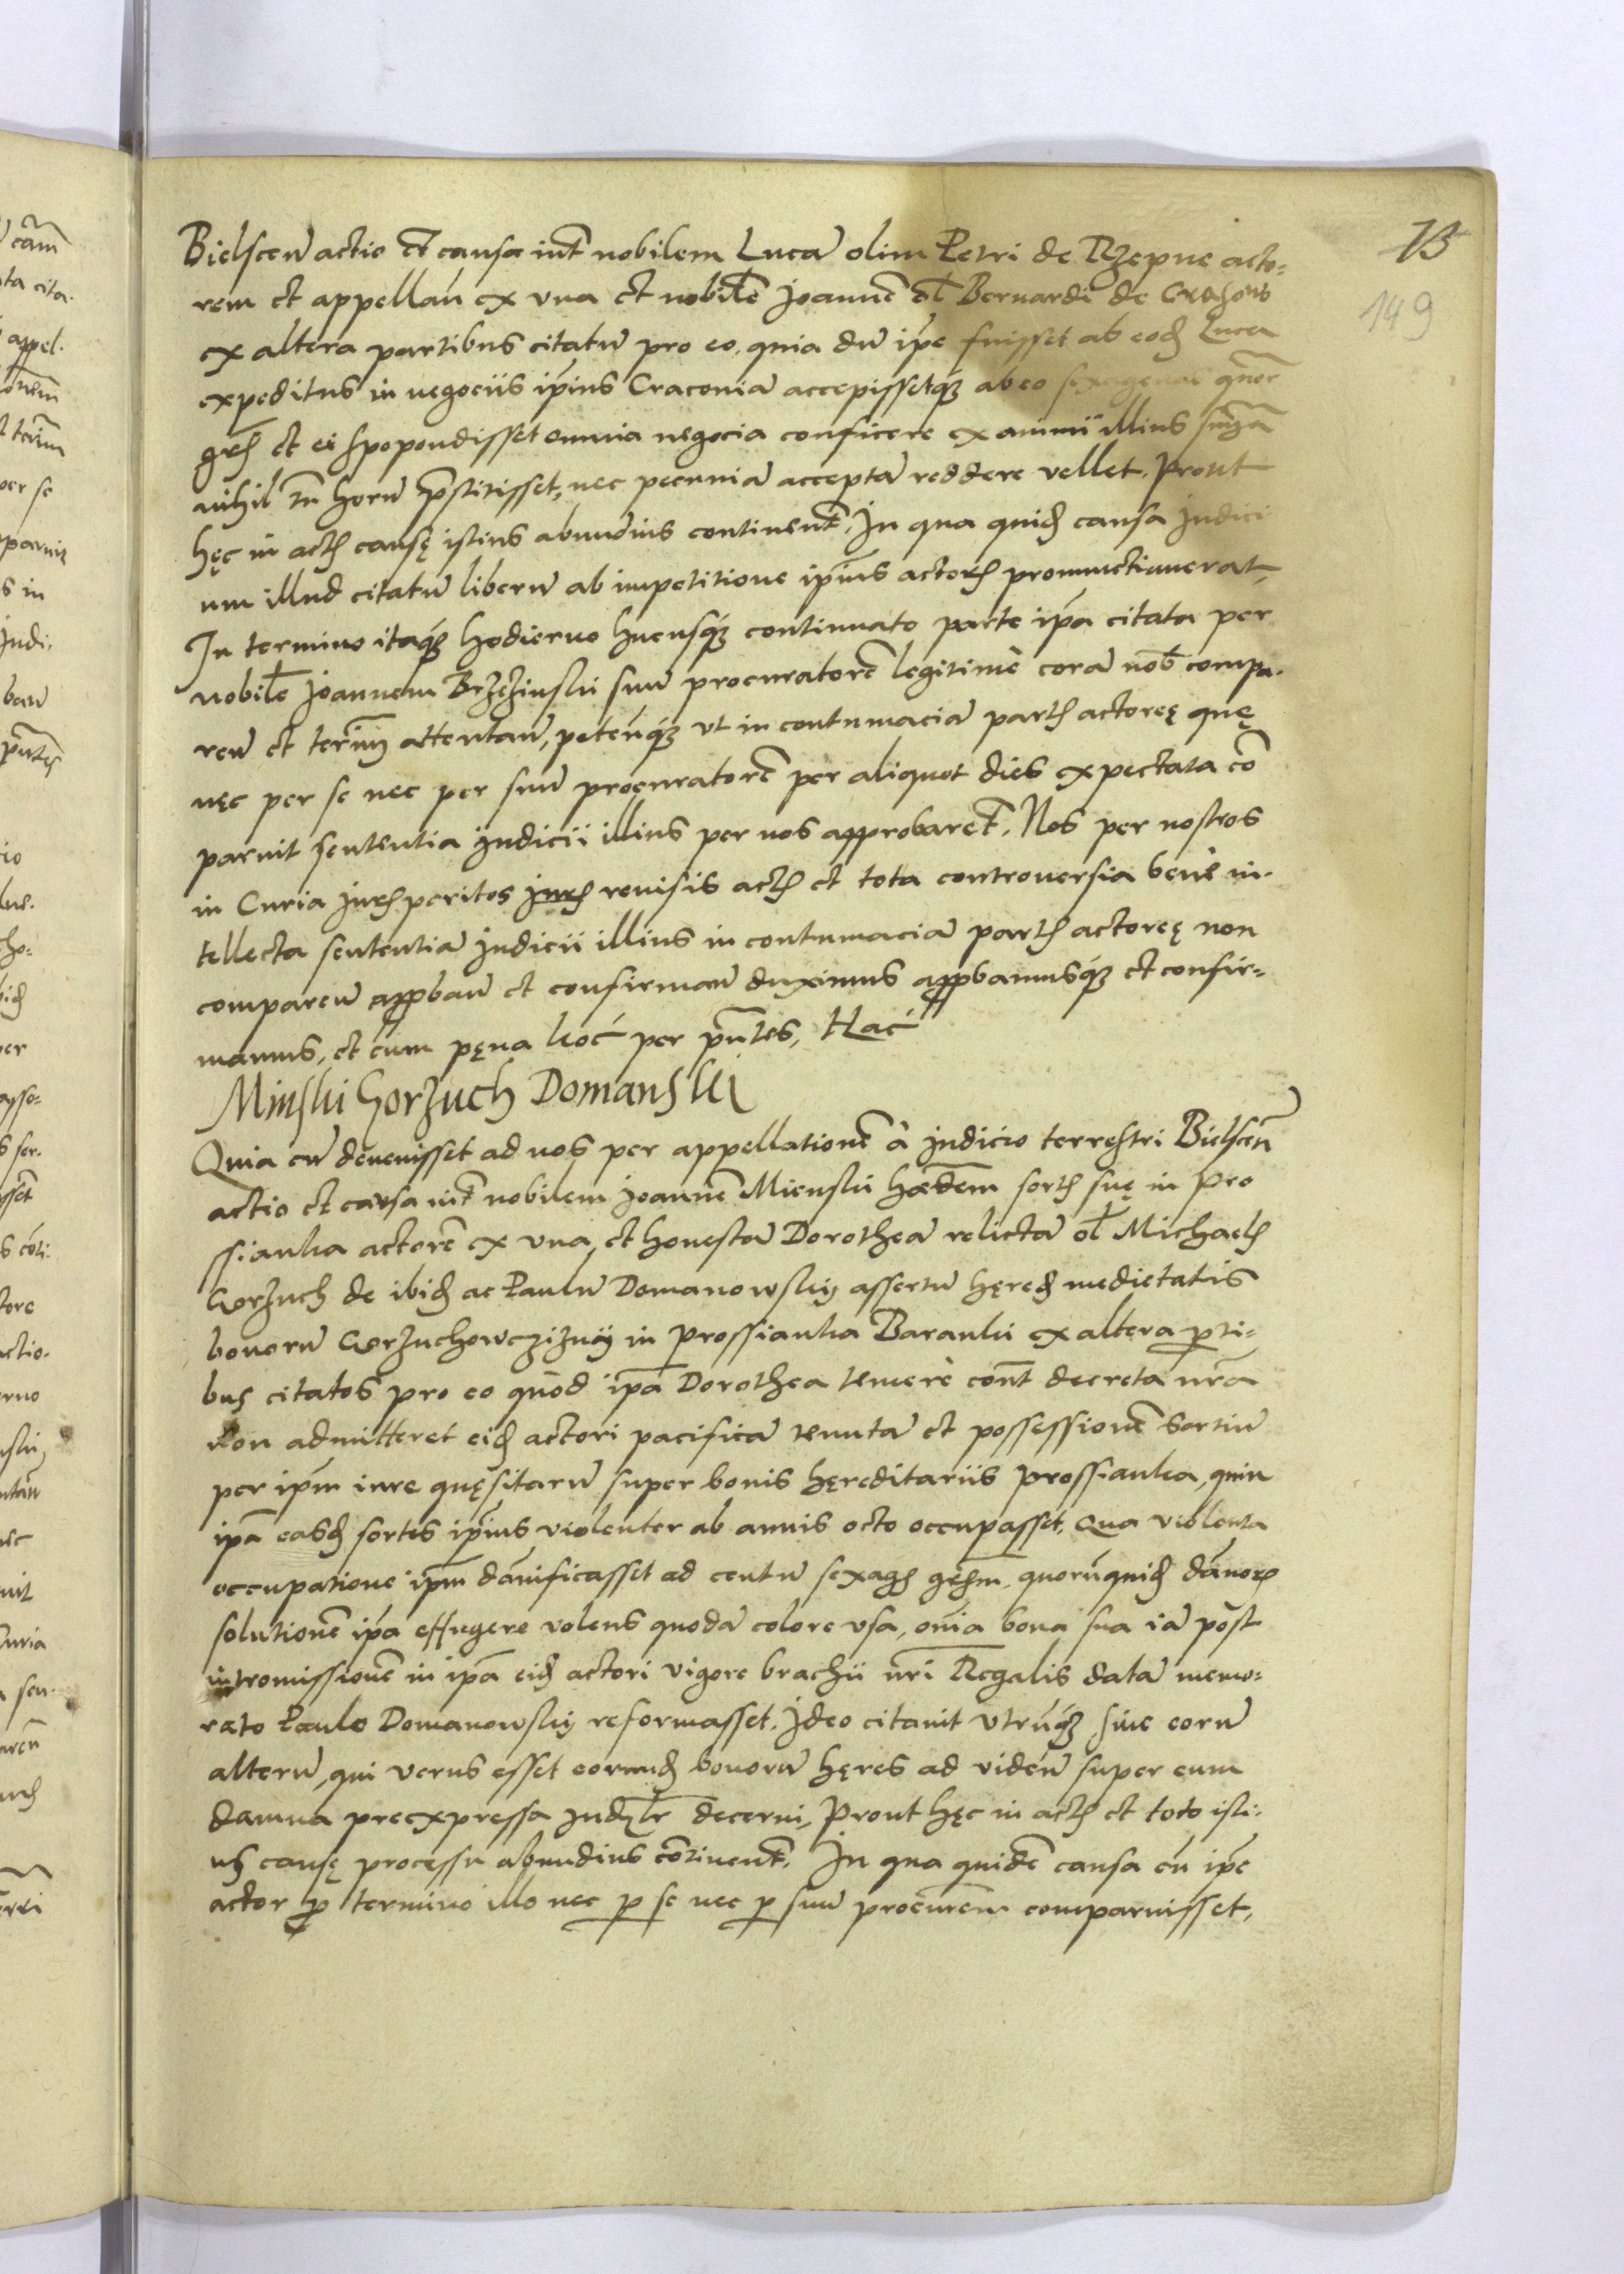 73
149
Bielsceñ actio et causa int̃ nobilem Lucã olim Petri de Rzepne acto=
rem et appellañ ex vna et nobilẽ Joannẽ ol̃ Bernardi de
ex altera partibus citatũ pro eo, quia dũ ip̃e fuisset ab eod̃ Luca
expeditus in negociis ip̃ius Cracouiã accepissetq̃ȝ ab eo sexagenas
et ei spopondisset omnia negocia conficere ex animi illius
nihil tñ horũ p̃stitisset, nec pecuniã acceptã reddere vellet. Prout
hęc in actis causę istius abundius continent̃. In qua quid̃ causa Judici
um illud citatũ liberũ ab impetitione ip̃ius actoris pronunctiauerat,
In termino itaq̃ȝ hodierno hucusq̃ȝ continuato parte ip̃a citata per
nobilẽ Joannem Brzezinskii suũ procuratorẽ legitimè corã nob̃ compa.
reñ et terminũ attentañ, peteñq̃ȝ vt in contumaciã partis actoreę quę
nęc per se nec per suũ procuratorẽ per aliquot dies expectata cõ
paruit sententia Judicii illius per nos approbaret̃. Nos per nostros
in Curia Juris peritos reuisis actis et tota controuersia benè in-
tellecta sententiã Judicii illius in contumaciã partis actoreę non
compareñ app̃bañ et confirmañ duximus app̃bamusq̃ȝ et confir=
mamus, et cum pęna hoc per p̃ntes, Hac
Minskii Gorzuch Domanskij
Quia cũ deuenisset ad nos per appellationẽ à Judicio terrestri Bielsceñ
actio et causa int̃ nobilem Joannẽ Mienskii hæredem sortis suę in Pro
ssianka actorẽ ex vna, et honestã Dorotheã relictã ol̃ Michaelis
Gorzuch de ibid̃ ac Paulũ Domanowskij assertũ hęred̃ medietatis
bonorũ Gorzuchowczizny in Prossianka Baranki ex altera p̱ti=
bus citatos pro eo quod ip̃a Dorothea temerè cont̃ decreta nr̃a
non admitteret eid̃ actori pacificã tenutã et possessionẽ sortiũ
per ip̃m iure quęsitarũ super bonis hęreditariis Prossianka, quin
ip̃a easd̃ sortes ip̃ius violenter ab annis octo occupasset, Qua violenta
occupatione ip̃m dam̃ificasset ad centũ sexag̃ quorũquid̃ dam̃orȝ
solutionẽ ip̃a effugere volens quodã colore vsa, om̃ia bona sua iã post
intromissionẽ in ip̃a eid̃ actori vigore brachii nr̃i Regalis datã memo=
rato Paulo Domanowskij reformasset. Ideo citauit vtrũq̃ȝ siue eorũ
alterũ, qui verus esset eorund̃ bonorũ hęres ad videñ super eum
damna preexpressa decerni, Prout hęc in actis et toto isti=
us causę processu abundius cõtinent̃. In qua quidẽ causa cũ ip̃e
actor p̱ termino illo nec p̱ se nec p̱ suũ procur̃em comparuisset,